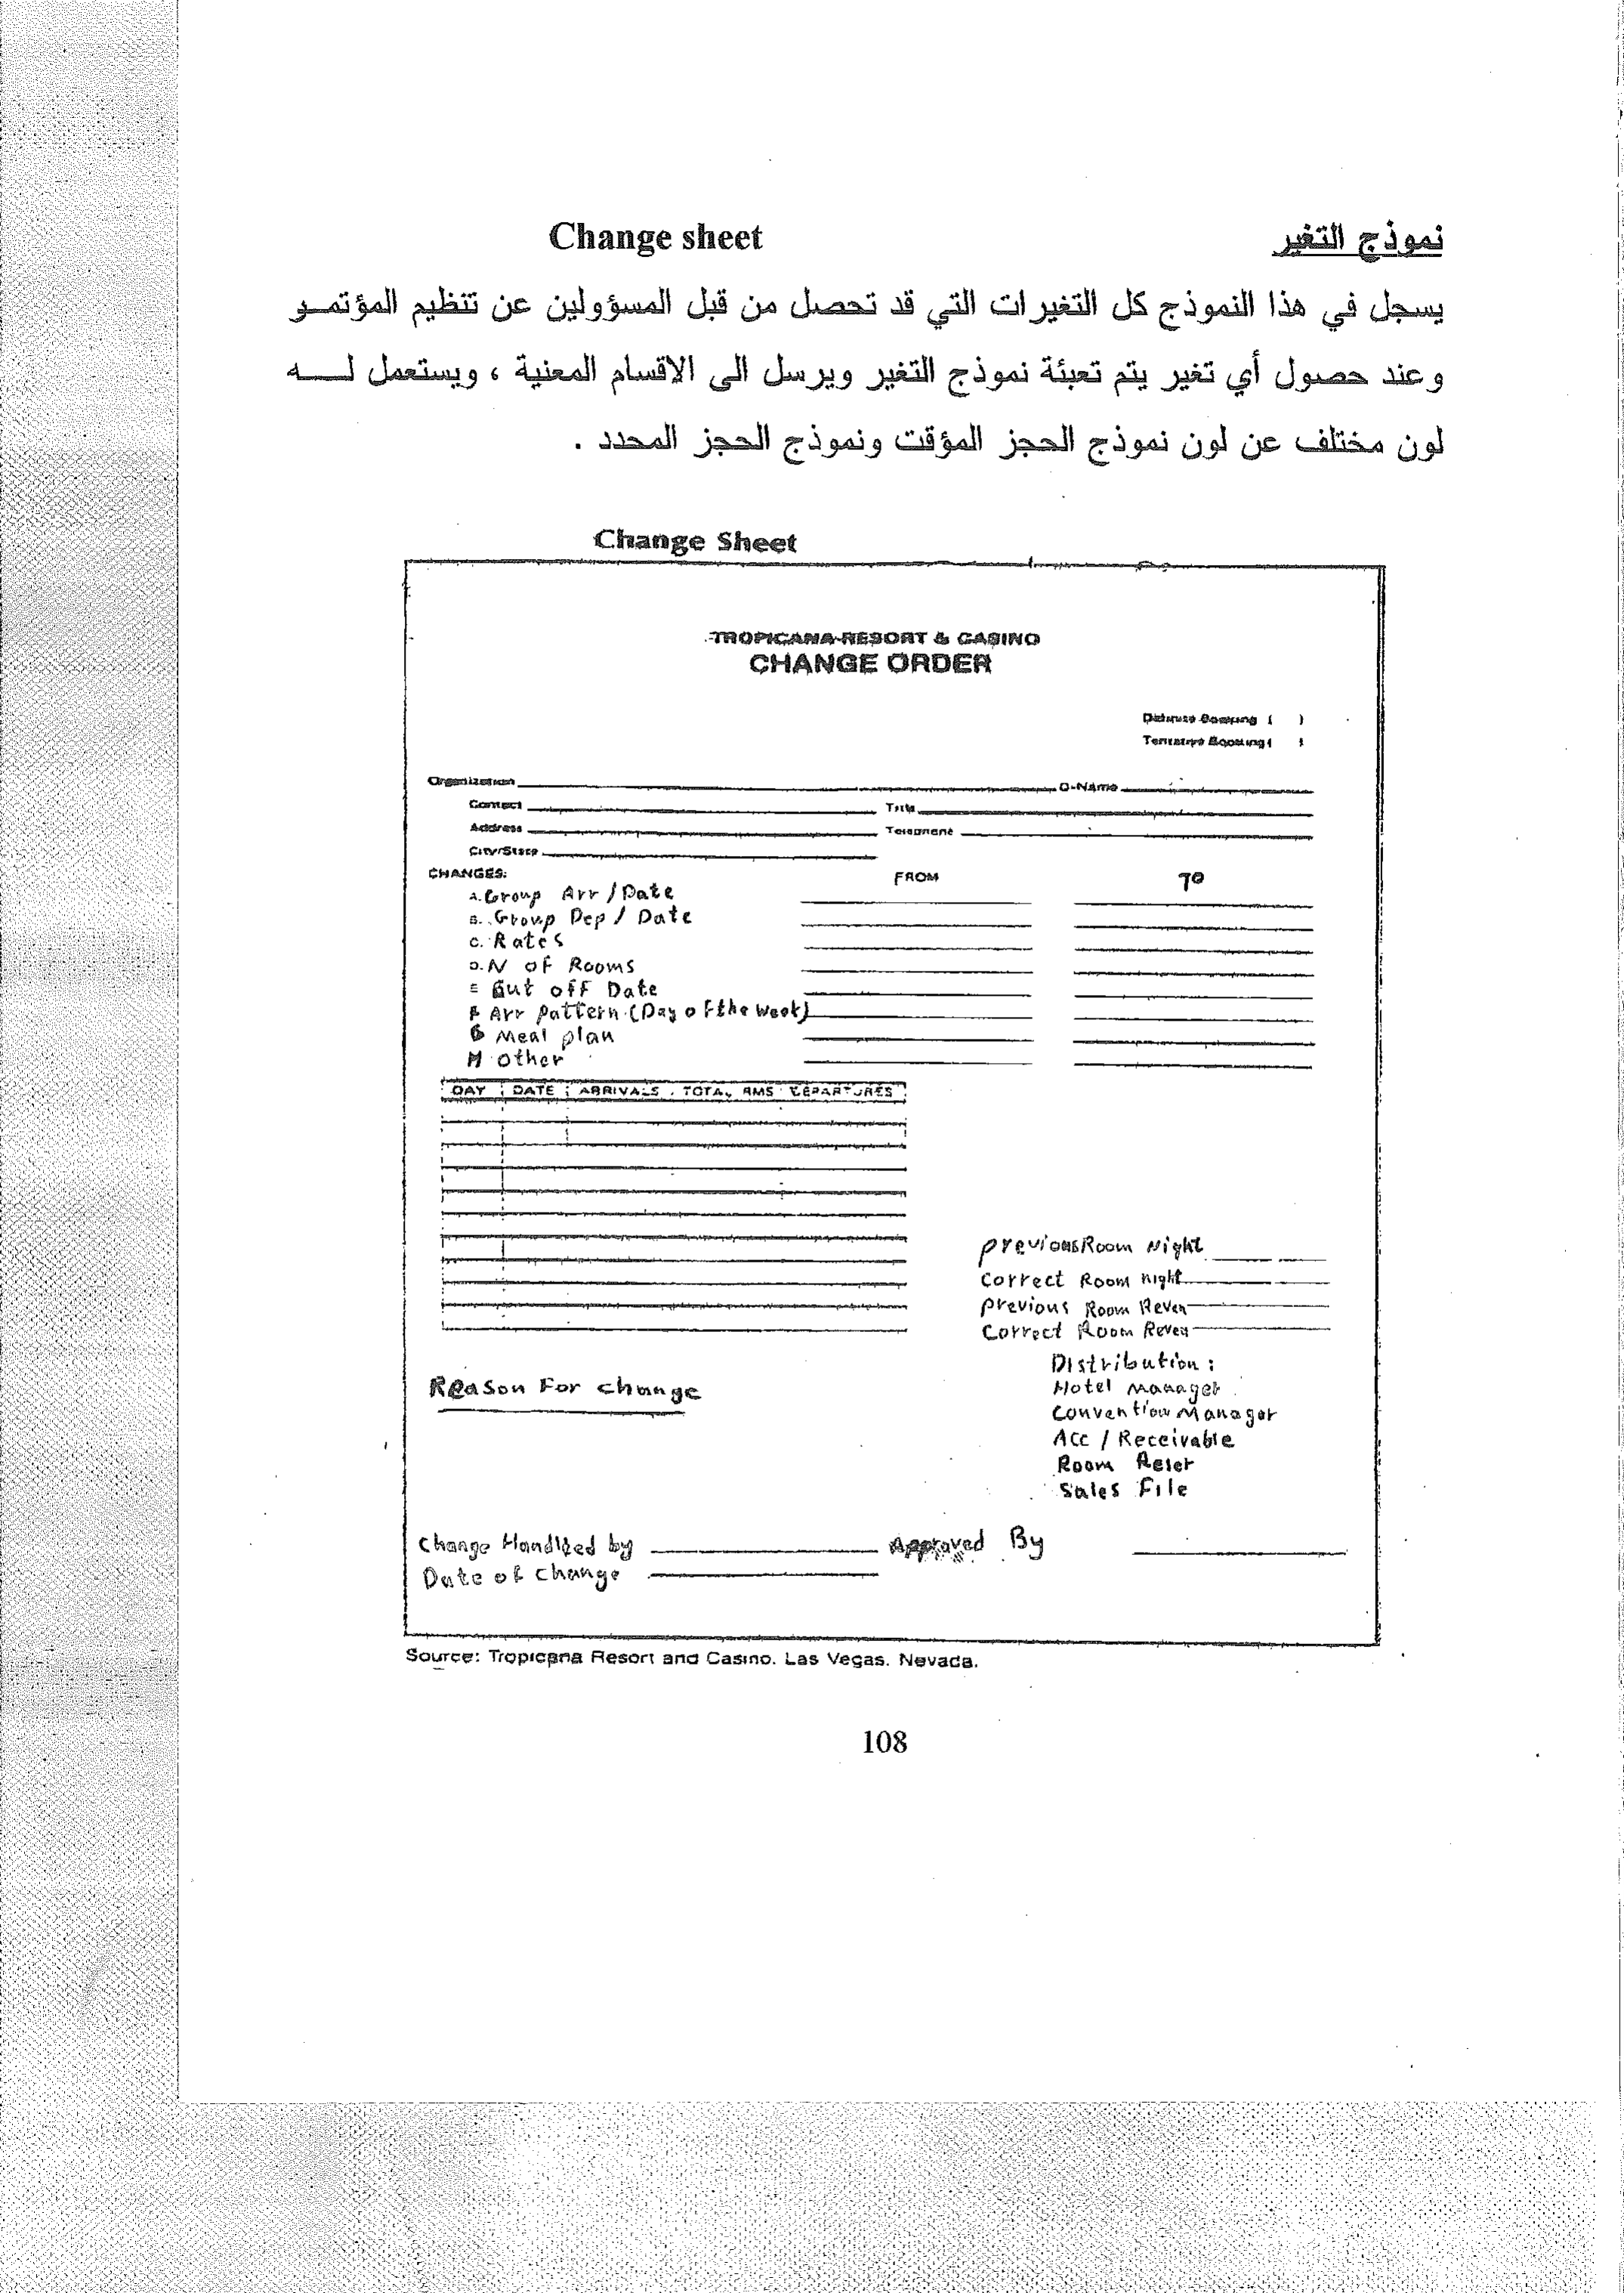 نموذج التغير Change sheet
يسجل في هذا النموذج كل التغيرات التي قد تحصل من قبل المسؤولين عن تنظيم المؤتمـو
وعند حصول أي تغير يتم تعبئة نموذج التغير ويرسل الى الاقسام المعنية ، ويستعمل لـــه
لون مختلف عن لون نموذج الحجز المؤقت ونموذج الحجز المحدد .
Change Sheet
TROPICANA RESORT & CASINO
CHANGE ORDER
Definite Booking ( )
Tentative Booking ( )
Organization D-Name
Contact Title
Address Telephone
City/State
CHANGES: FROM TO
A. Group Arr / Date
B. Group Dep / Date
C. Rates
D. N of Rooms
E Cut off Date
F Arr pattern (Day of the Week)
G Meal plan
H other
DAY DATE ARRIVALS TOTAL RMS DEPARTURES
previous Room Night
Correct Room night
previous Room Reven
Correct Room Reven
Distribution :
Hotel Manager
Convention Manager
Acc / Receivable
Room
Sales File
Reason For change
Change Handled by Approved By
Date of change
Source: Tropicana Resort and Casino. Las Vegas. Nevada.
108